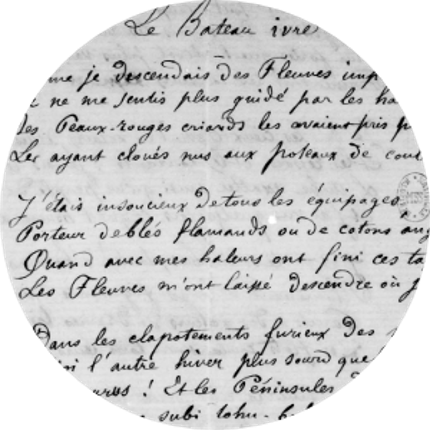 Le Bateau ivre
me je descendais des Fleuves imp
ne me sentis plus guidé par les ha
des Peaux-rouges criards les avaient pris p
Les ayant cloués nus aux poteaux de coul
J'étais insoucieux de tous les équipages
Porteur de blés flamands ou de cotons ang
Quand avec mes haleurs ont fini ces ta
Les Fleuves m'ont laissé descendre où j
Dans les clapotements furieux des
l'autre hiver plus sourd que
! Et les Péninsules
subi tohu-b